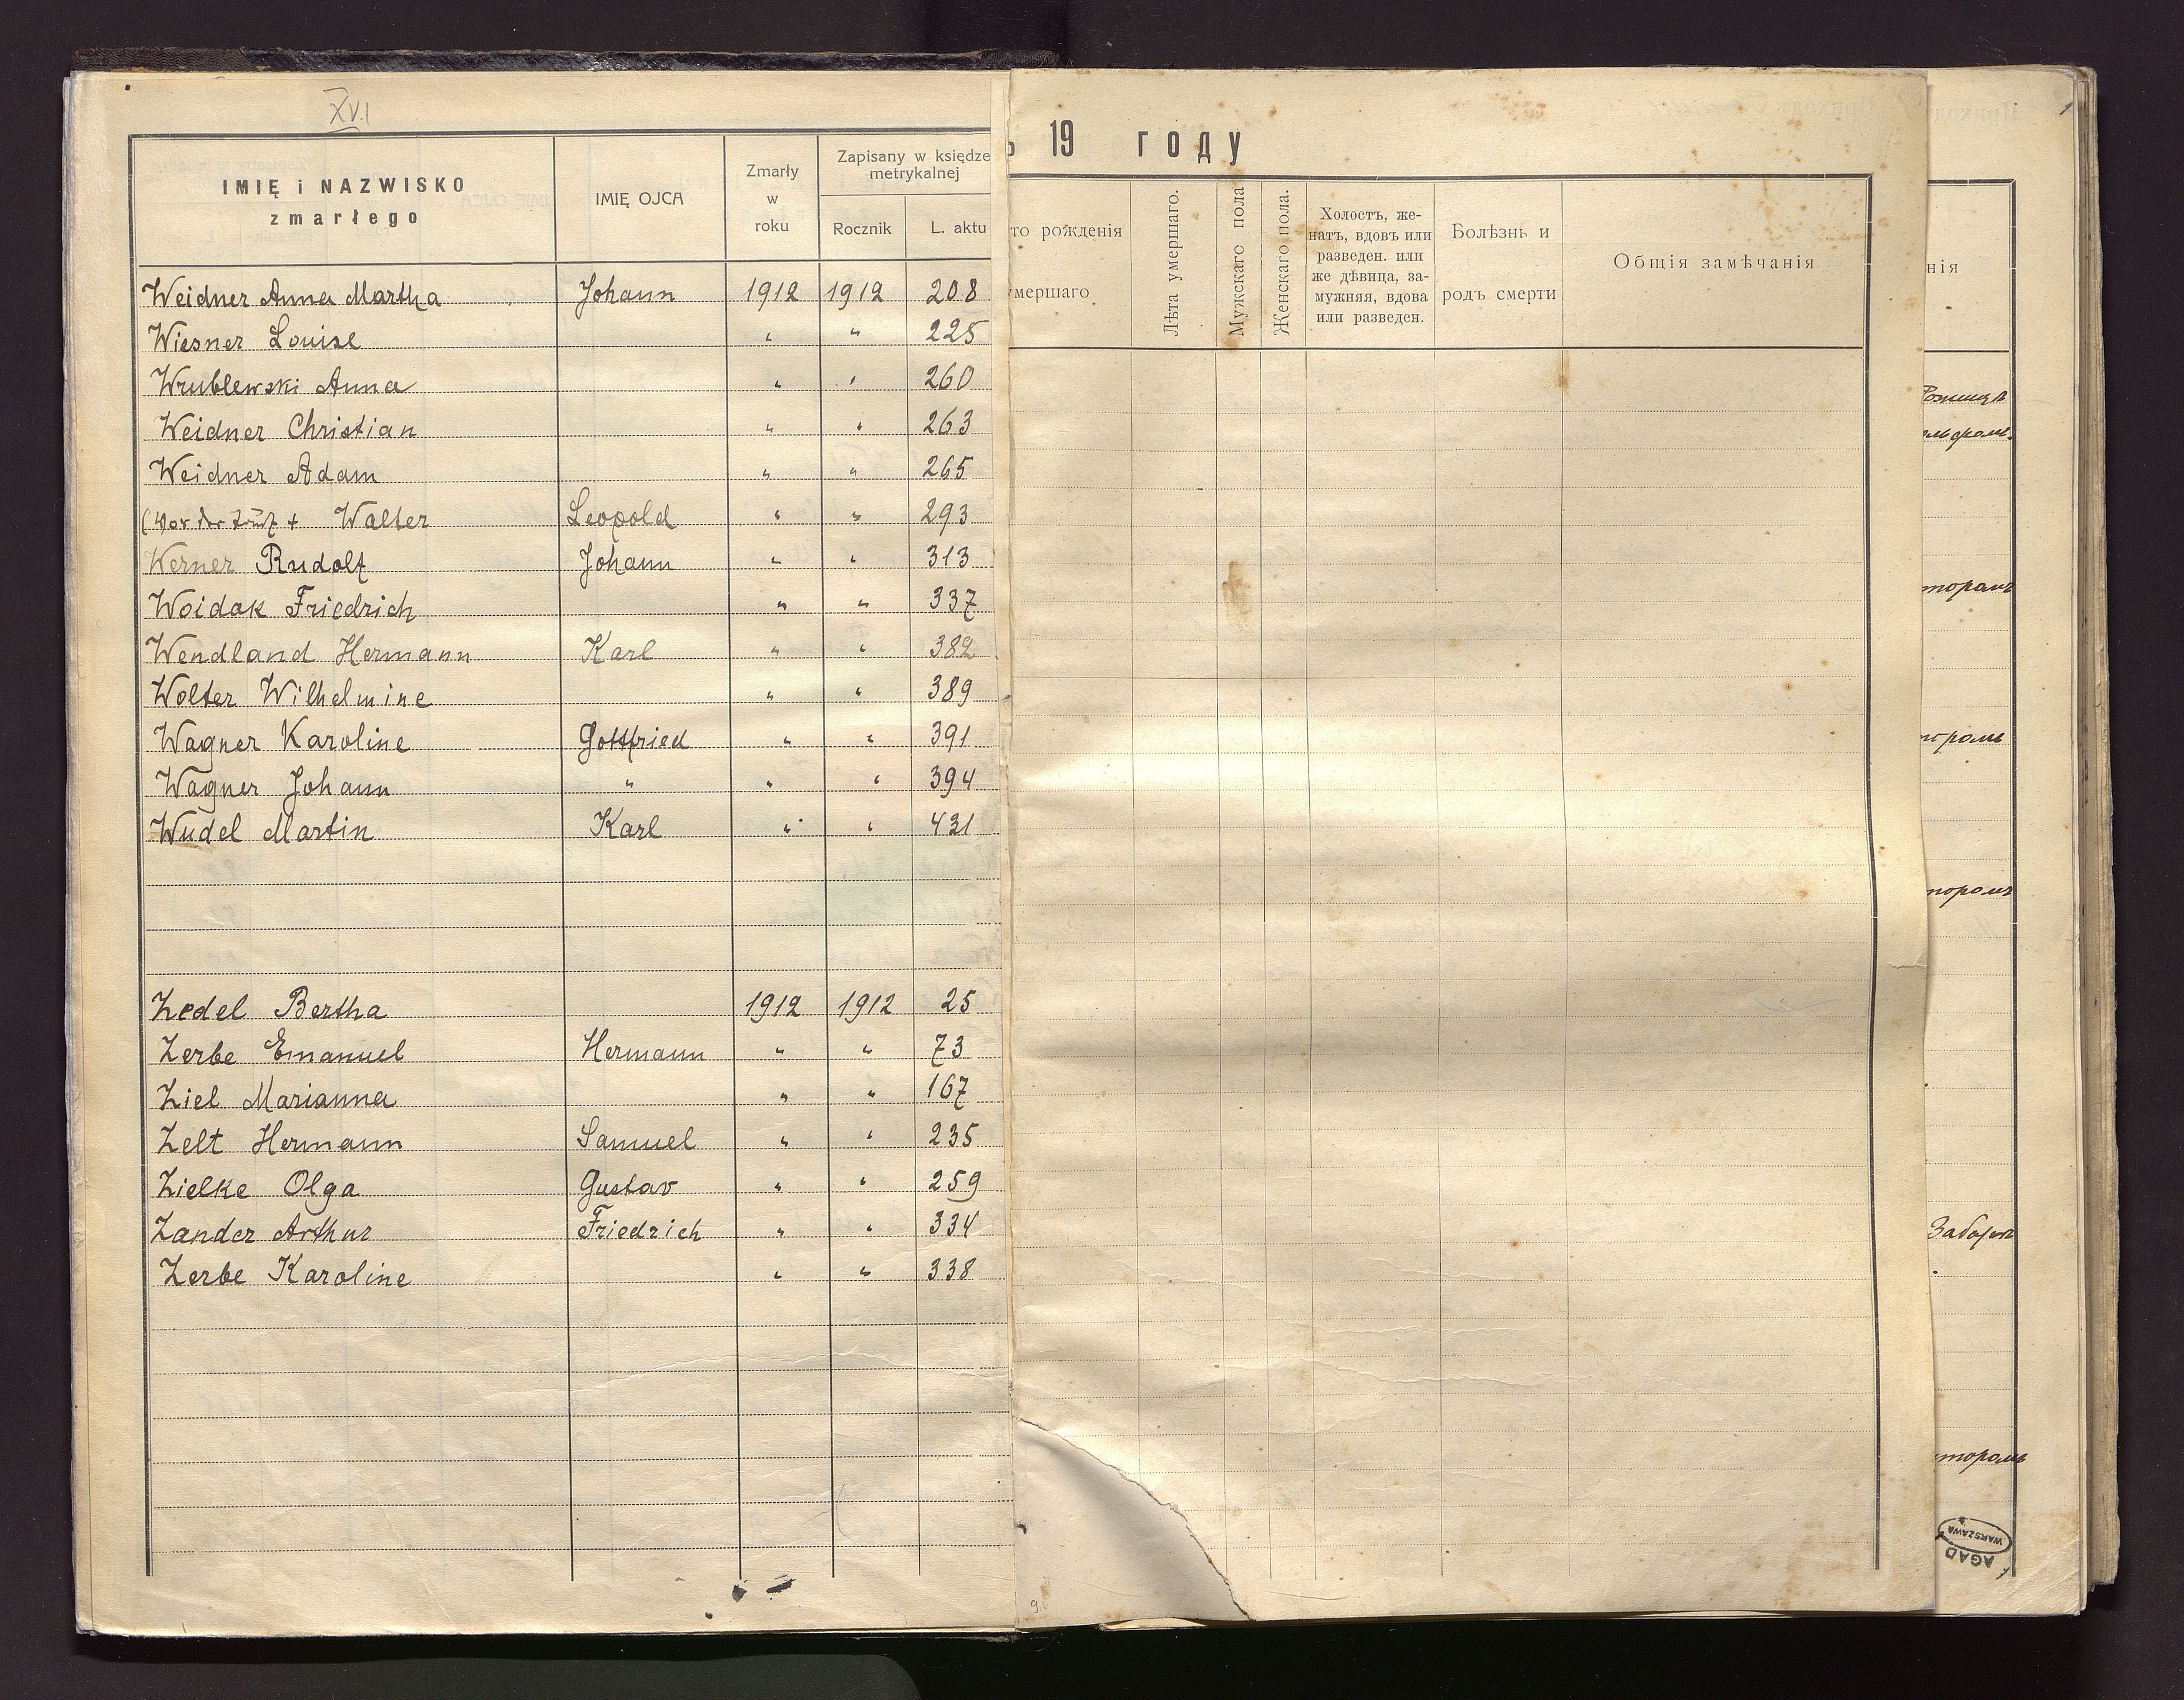 XVI
IMIĘ i NAZWISKO
zmarłego
IMIĘ OJCA
Zmarły
w
roku
Zapisany w księdze
metrykalnej
Rocznik
L. aktu
Weidner Anna Martha Johann 1912 1912 208
Wiesner Louise " " 225
Wrublewski Anna " " 260
Weidner Christian " " 263
Weidner Adam " " 265
Walter Leopold " " 293
Werner Rudolf Johann " " 313
Woidak Friedrich " " 337
Wendland Hermann Karl " " 382
Wolter Wilhelmine " " 389
Wagner Karoline Gottfried " " 391
Wagner Johann " " " 394
Wudel Martin Karl " " 431
Zedel Bertha 1912 1912 25
Zerbe Emanuel Hermann " " 73
Ziel Marianna " " 167
Zelt Hermann Samuel " " 235
Zielke Olga Gustav " " 259
Zander Arthur Friedrich " " 334
Zerbe Karoline " " 338
ъ 19 году
то рожденія
умершаго
Лѣта умершаго.
Мужскаго пола
Женскаго пола.
Холостъ, же-
натъ, вдовъ или
разведен. или
же дѣвица, за-
мужняя, вдова
или разведен.
Болѣзнь и
родъ смерти
Общія замѣчанія
нія
AGAD
WARSZAWA